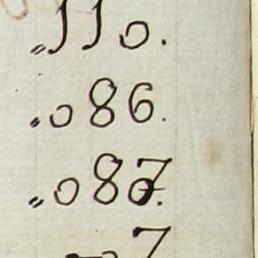 „110.
„086.
„087.
7